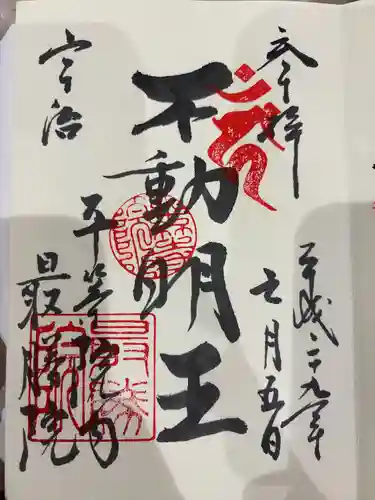 奉拝
平成二十九年
七月五日
不動明王
宇治
平等院内
最勝院